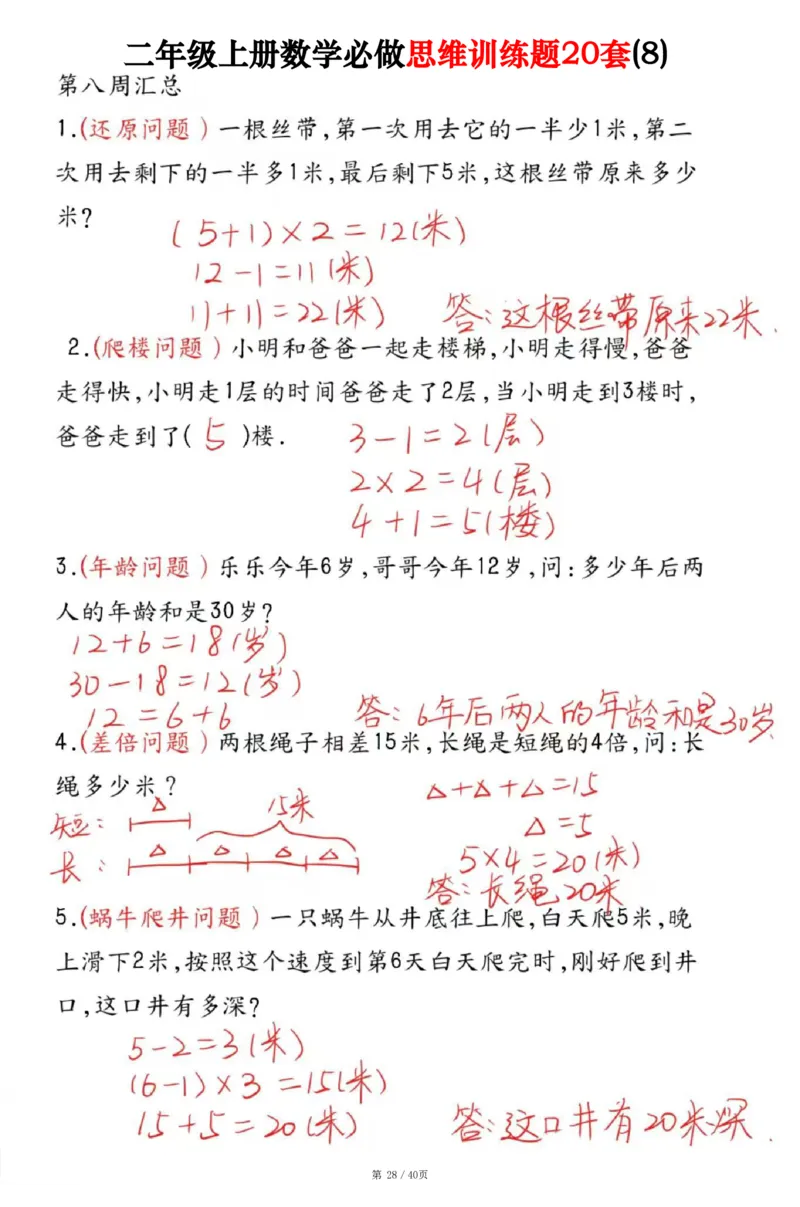 二年级上册数学必做思维训练题20套(8)
第八周汇总
1.(还原问题)一根丝带,第一次用去它的一半少1米,第二
次用去剩下的一半多1米,最后剩下5米,这根丝带原来多少
米?
(5+1)×2=12(米)
12-1=11(米)
11+11=22(米) 答:这根丝带原来22米.
2.(爬楼问题)小明和爸爸一起走楼梯,小明走得慢,爸爸
走得快,小明走1层的时间爸爸走了2层,当小明走到3楼时,
爸爸走到了(5)楼. 3-1=2(层)
2×2=4(层)
4+1=5(楼)
3.(年龄问题)乐乐今年6岁,哥哥今年12岁,问:多少年后两
人的年龄和是30岁?
12+6=18(岁)
30-18=12(岁)
12=6+6 答:6年后两人的年龄和是30岁
4.(差倍问题)两根绳子相差15米,长绳是短绳的4倍,问:长
绳多少米?
△+△+△=15
△ 15米
短: △=5
长: △ △ △ △ 5×4=20(米)
答:长绳20米
5.(蜗牛爬井问题)一只蜗牛从井底往上爬,白天爬5米,晚
上滑下2米,按照这个速度到第6天白天爬完时,刚好爬到井
口,这口井有多深?
5-2=3(米)
(6-1)×3=15(米)
15+5=20(米) 答:这口井有20米深.
第 28 / 40页